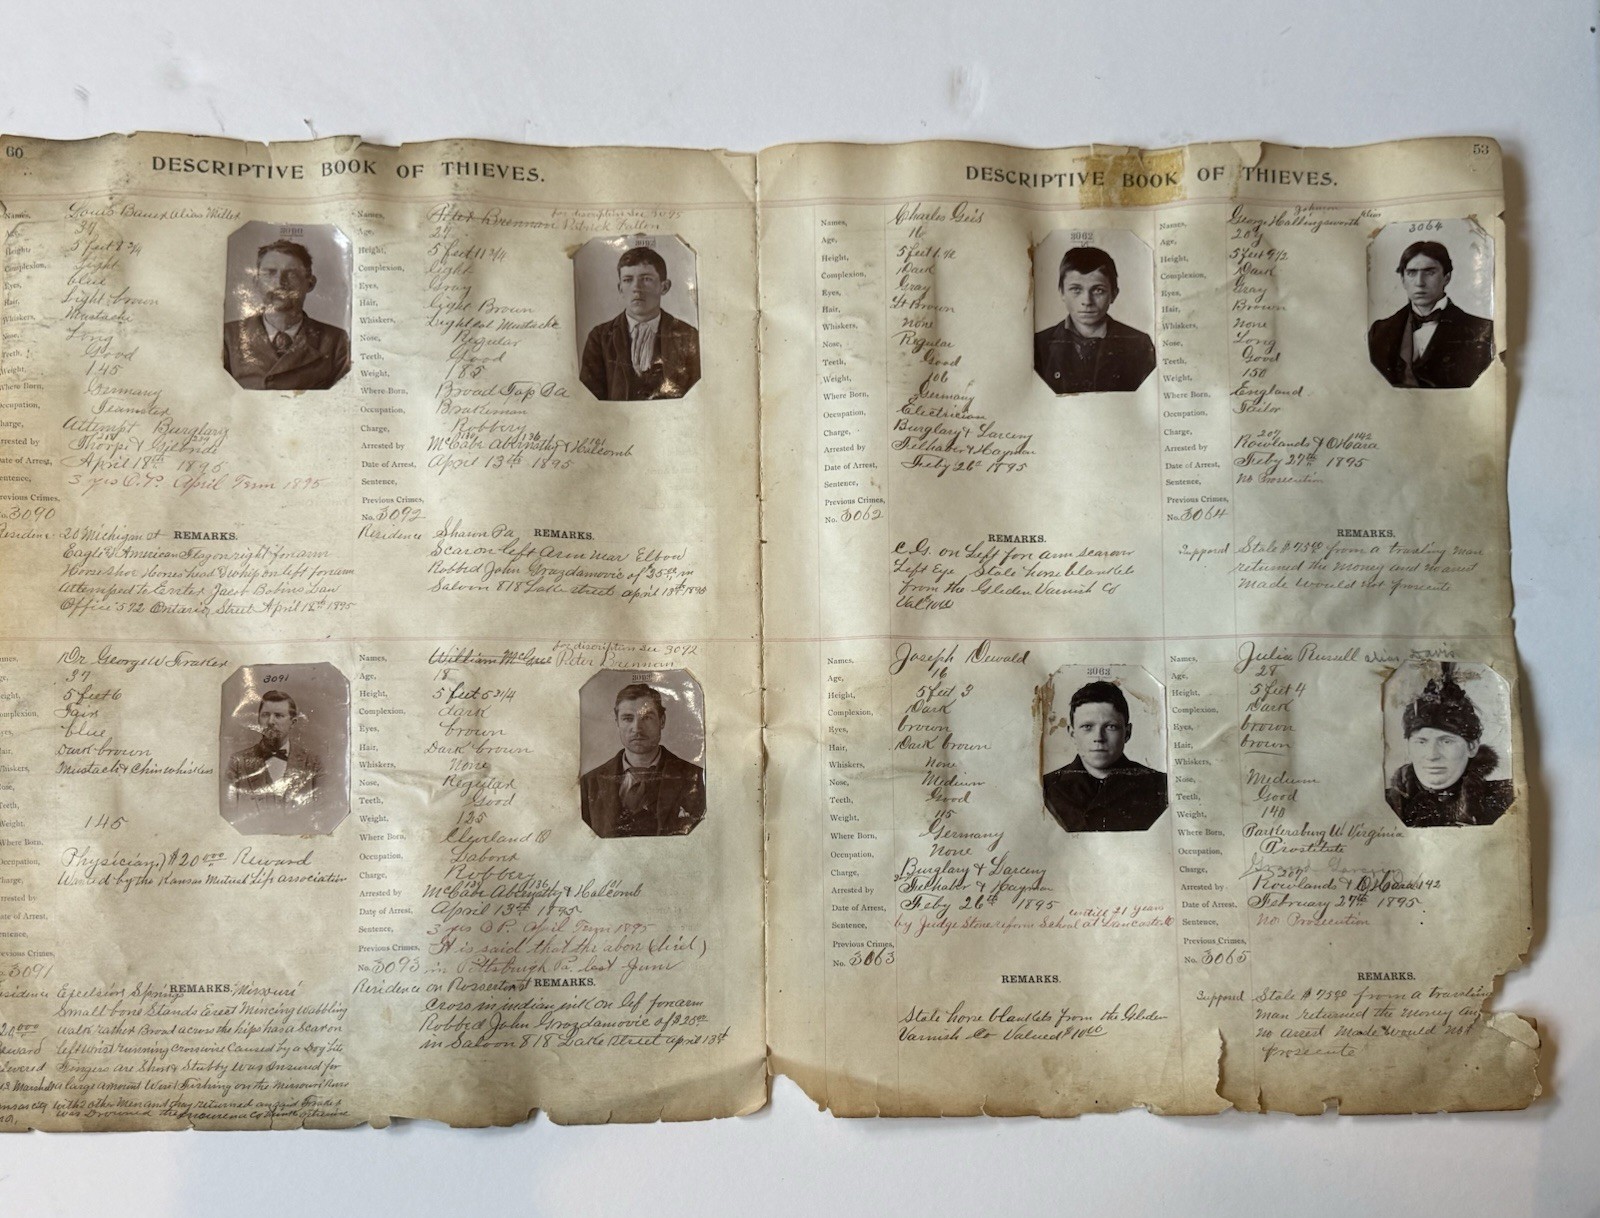 60
DESCRIPTIVE BOOK OF THIEVES.
Names, Louis Bauer alias Miller
Age, 34
Height, 5 feet 8 3/4
Complexion, light
Eyes, blue
Hair, Light brown
Whiskers, Mustache
Nose, Long
Teeth, Good
Weight, 145
Where Born, Germany
Occupation, Teamster
Charge, Attempt Burglary
Arrested by Thorp &
Date of Arrest, April 18th 1895
Sentence, 3 yrs O.P. April Term 1895
Previous Crimes,
No. 3090
REMARKS.
Residence 20 Michigan st
Eagle & American Flag on right forarm
Horse shoe Horse head & whip on left forarm
attempted to Enter Jacob
Office 592 Ontario Street April 18th 1895
3090
Names, Peter Brennan Patrick Fallon
for discription see 3093
Age, 27
Height, 5 feet 11 3/4
Complexion, light
Eyes, Gray
Hair, Light Brown
Whiskers, Mustache
Nose, Regular
Teeth, Good
Weight, 185
Where Born, Broad Top Pa
Occupation, Brakeman
Charge, Robbery
Arrested by McCabe Abernathy & Halcomb
Date of Arrest, April 13th 1895
Sentence,
Previous Crimes,
No. 3092
REMARKS.
Residence Sharon Pa
Scar on left arm near Elbow
Robbed John Grozdamovic of $25.00 in
Saloon 818 Lake street april 13th 1895
3092
Names, Dr George W Fraker
Age, 37
Height, 5 feet 6
Complexion, Fair
Eyes, blue
Hair, Dark brown
Whiskers, Mustach & Chin whiskers
Nose,
Teeth,
Weight, 145
Where Born,
Occupation, Physician) $20 000 Reward
Charge, Wanted by the Kansas Mutual Life association
Arrested by
Date of Arrest,
Sentence,
Previous Crimes,
No. 3091
REMARKS.
Residence Excelsior Springs Missouri
Small bone Stands Erect Mincing Wabbling
walk rather Broad across the hips has a Scar on
left wrist running crosswise Caused by a Dog bite
Fingers are Short & Stubby Was Insured for
a large amount Went Fishing on the Missouri River
with 2 other Men and they returned and said Fraker
was Drowned the
3091
Names, William McCue Peter Brennan
for discription see 3092
Age, 18
Height, 5 feet 5 3/4
Complexion, dark
Eyes, brown
Hair, Dark brown
Whiskers, None
Nose, Regular
Teeth, Good
Weight, 125
Where Born, Cleveland O
Occupation, Laborer
Charge, Robbery
Arrested by McCabe Abernathy & Halcomb
Date of Arrest, April 13th 1895
Sentence, 3 yrs O P. April Term 1895
Previous Crimes, It is said that the abov (died)
No. 3093 in Pittsburgh Pa. last June
REMARKS.
Residence on
Cross in indian ink on lef forarm
Robbed John Grozdamovic of $25.00
in Saloon 818 Lake street april 13th
3093
53
DESCRIPTIVE BOOK OF THIEVES.
Names, Charles Geis
Age, 16
Height, 5 feet 1 1/2
Complexion, Dark
Eyes, Gray
Hair, Lt Brown
Whiskers, none
Nose, Regular
Teeth, Good
Weight, 106
Where Born, Germany
Occupation, Electrician
Charge, Burglary & Larceny
Arrested by Felhaber & Hayman
Date of Arrest, Feby 26th 1895
Sentence,
Previous Crimes,
No. 3062
REMARKS.
C.G. on Left for arm scar over
Left Eye Stole horse blankets
from the Glidden Varnish Co
Val 10.00
3062
Names, George Hollingsworth alias
Johnson
Age, 20 y
Height, 5 feet 9 1/2
Complexion, Dark
Eyes, Gray
Hair, Brown
Whiskers, None
Nose, Long
Teeth, Good
Weight, 150
Where Born, England
Occupation, Tailor
Charge,
Arrested by Rowlands & OHara 142
207
Date of Arrest, Feby 27th 1895
Sentence, No Prosecution
Previous Crimes,
No. 3064
REMARKS.
Supposed Stole $75.00 from a traviling man
returned the money and no arrest
made would not prosecute
3064
Names, Joseph Dewald
Age, 16
Height, 5 feet 3
Complexion, Dark
Eyes, brown
Hair, Dark brown
Whiskers, None
Nose, Medium
Teeth, Good
Weight, 115
Where Born, Germany
Occupation, None
Charge, Burglary & Larceny
Arrested by Felhaber & Hayman
Date of Arrest, Feby 26th 1895
Sentence, by Judge Stone reform School at Lancaster O
untill 21 years
Previous Crimes,
No. 3063
REMARKS.
Stole horse blankets from the Glidden
Varnish Co Valued $10.00
3063
Names, Julia Russell alias Davis
Age, 28
Height, 5 feet 4
Complexion, Dark
Eyes, brown
Hair, brown
Whiskers,
Nose, Medium
Teeth, Good
Weight, 140
Where Born, Parkersburg W. Virginia
Occupation, Prostitute
Charge, Grand Larceny
Arrested by Rowlands & OHara 142
207
Date of Arrest, February 27th 1895
Sentence, No Prosecution
Previous Crimes,
No. 3065
REMARKS.
Supposed Stole $75.00 from a traviling
man returned the money and
no arrest made would not
prosecute